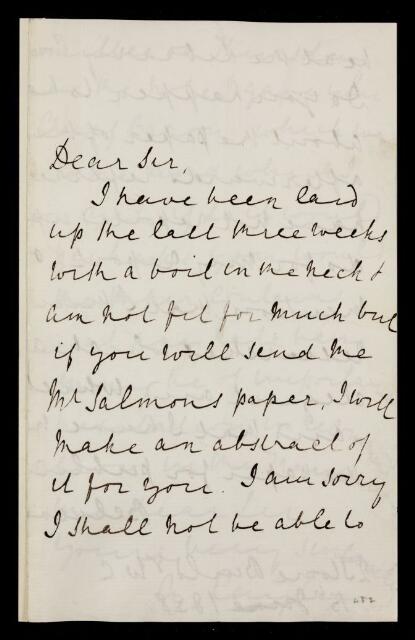 Dear Sir,
I have been laid
up the last three weeks
with a boil in the neck &
am not fit for much but
if you will send me
Mr Salmons paper, I will
make an abstract of
it for you. I am sorry
I shall not be able to